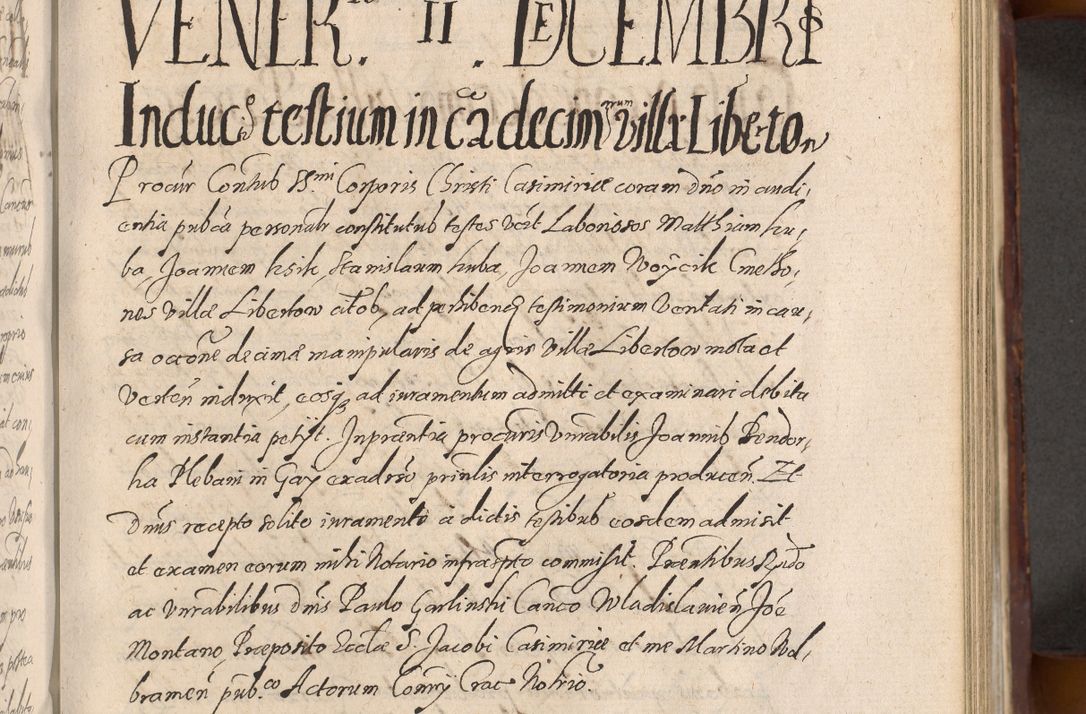 VENER. II. DECEMBRIS
Induc̃ testium in cã decim̃ villæ Liberton
Procur̃ Contub SS.mi Corporis Christi Casimiriæ coram dño in audi,
entia pubca personalr constitutub testes vĩt Laboriosos Matthiam ku,
ba, Joannem ksik, Stanislaum kuba, Joannem Woÿcik Cmetho,
nes villæ Libertow citob, ad perhibenđ testimonium veritati in cau,
sa occõne decimæ manipularis de agris villæ Libertow mota et
verteñ induxit, eosq3 ad iuramentum admitti et examinari debita
cum instantia petÿt. In prẽntia procuris Vnrabilis Joannib Pendor,
ha Plebani in Gay ex adrso prinlis interrogatoria produceñ. Et
Dnus recepto solito iuramento a dictis testibub eosdem admisit
et examen eorum mihi Notario infrascpto commisit. Prẽntibus Rndo
ac Vnrabilibus Dnis Paulo Garlinski Canco Wladislavieñ Joẽ
Montano Præposito Ecclæ S. Jacobi Casimiriæ et me Martino Wol,
brameñ pub.co Actorum Conrÿ Crac Notrio.